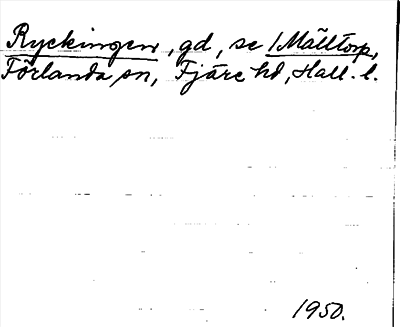 Ryckingen, gd, se 1 Mälltorp,
Förlanda sn, Fjäre hd, Hall. l.
1950.